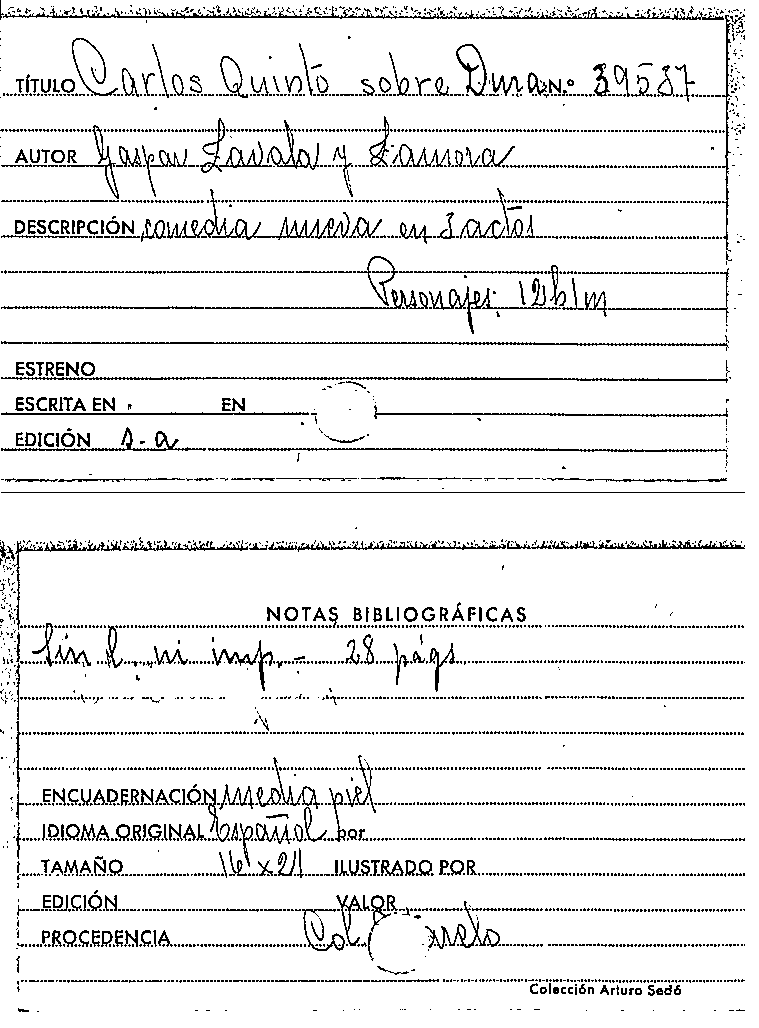 TÍTULO Carlos Quinto sobre Dura N.º 39587
AUTOR Gaspar Zavala y Zamora
DESCRIPCIÓN comedia nueva en 3 actos
Personajes: 12h 1m
ESTRENO
ESCRITA EN EN
EDICIÓN s-a
NOTAS BIBLIOGRÁFICAS
Sin l. ni imp. - 28 págs
ENCUADERNACIÓN media piel
IDIOMA ORIGINAL Español por
TAMAÑO 16 x 21 ILUSTRADO POR
EDICIÓN VALOR
PROCEDENCIA Col.
Colección Arturo Sedó